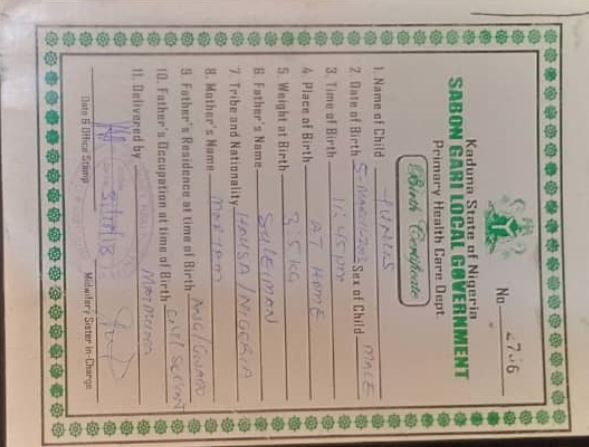 No 2706
Kaduna State of Nigeria
SABON GARI LOCAL GOVERNMENT
Primary Health Care Dept
Birth Certificate
1. Name of Child
2. Date of Birth 5-MARCH Sex of Child MALE
3. Time of Birth 45pm
4. Place of Birth AT HOME
5. Weight at Birth 3.5KG
6. Father's Name SULEIMAN
7. Tribe and Nationality HAUSA/NIGERIA
8. Mother's Name MARYAM
9. Father's Residence at time of Birth
10. Father's Occupation at time of Birth CIVIL SERVANT
11. Delivered by MAIMUNA
Date & Office Stamp
Midwifery Sister In-Charge